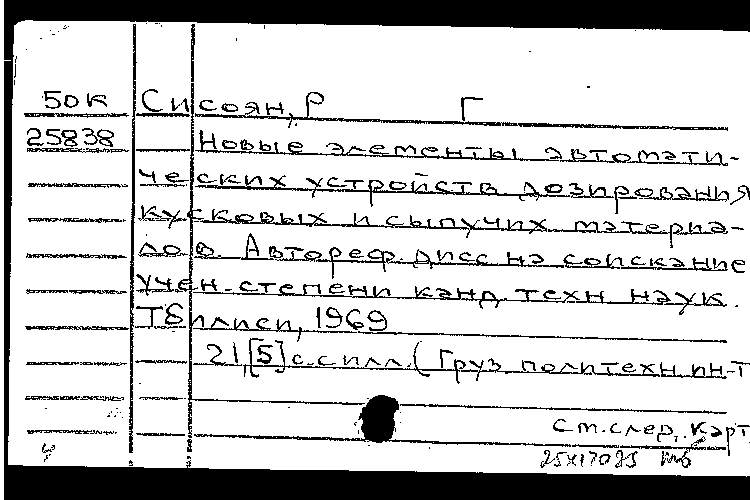 50К Сисоян, Р Г
25838 Новые элементы автомати-
ческих устройств дозирования
кусковых и сыпучих материа-
лов. Автореф. дисс на соискание
учен. степени канд. техн наук.
Тбилиси, 1969
21,[5] с. с илл. (Груз. политехн ин-т
См. след. карт.